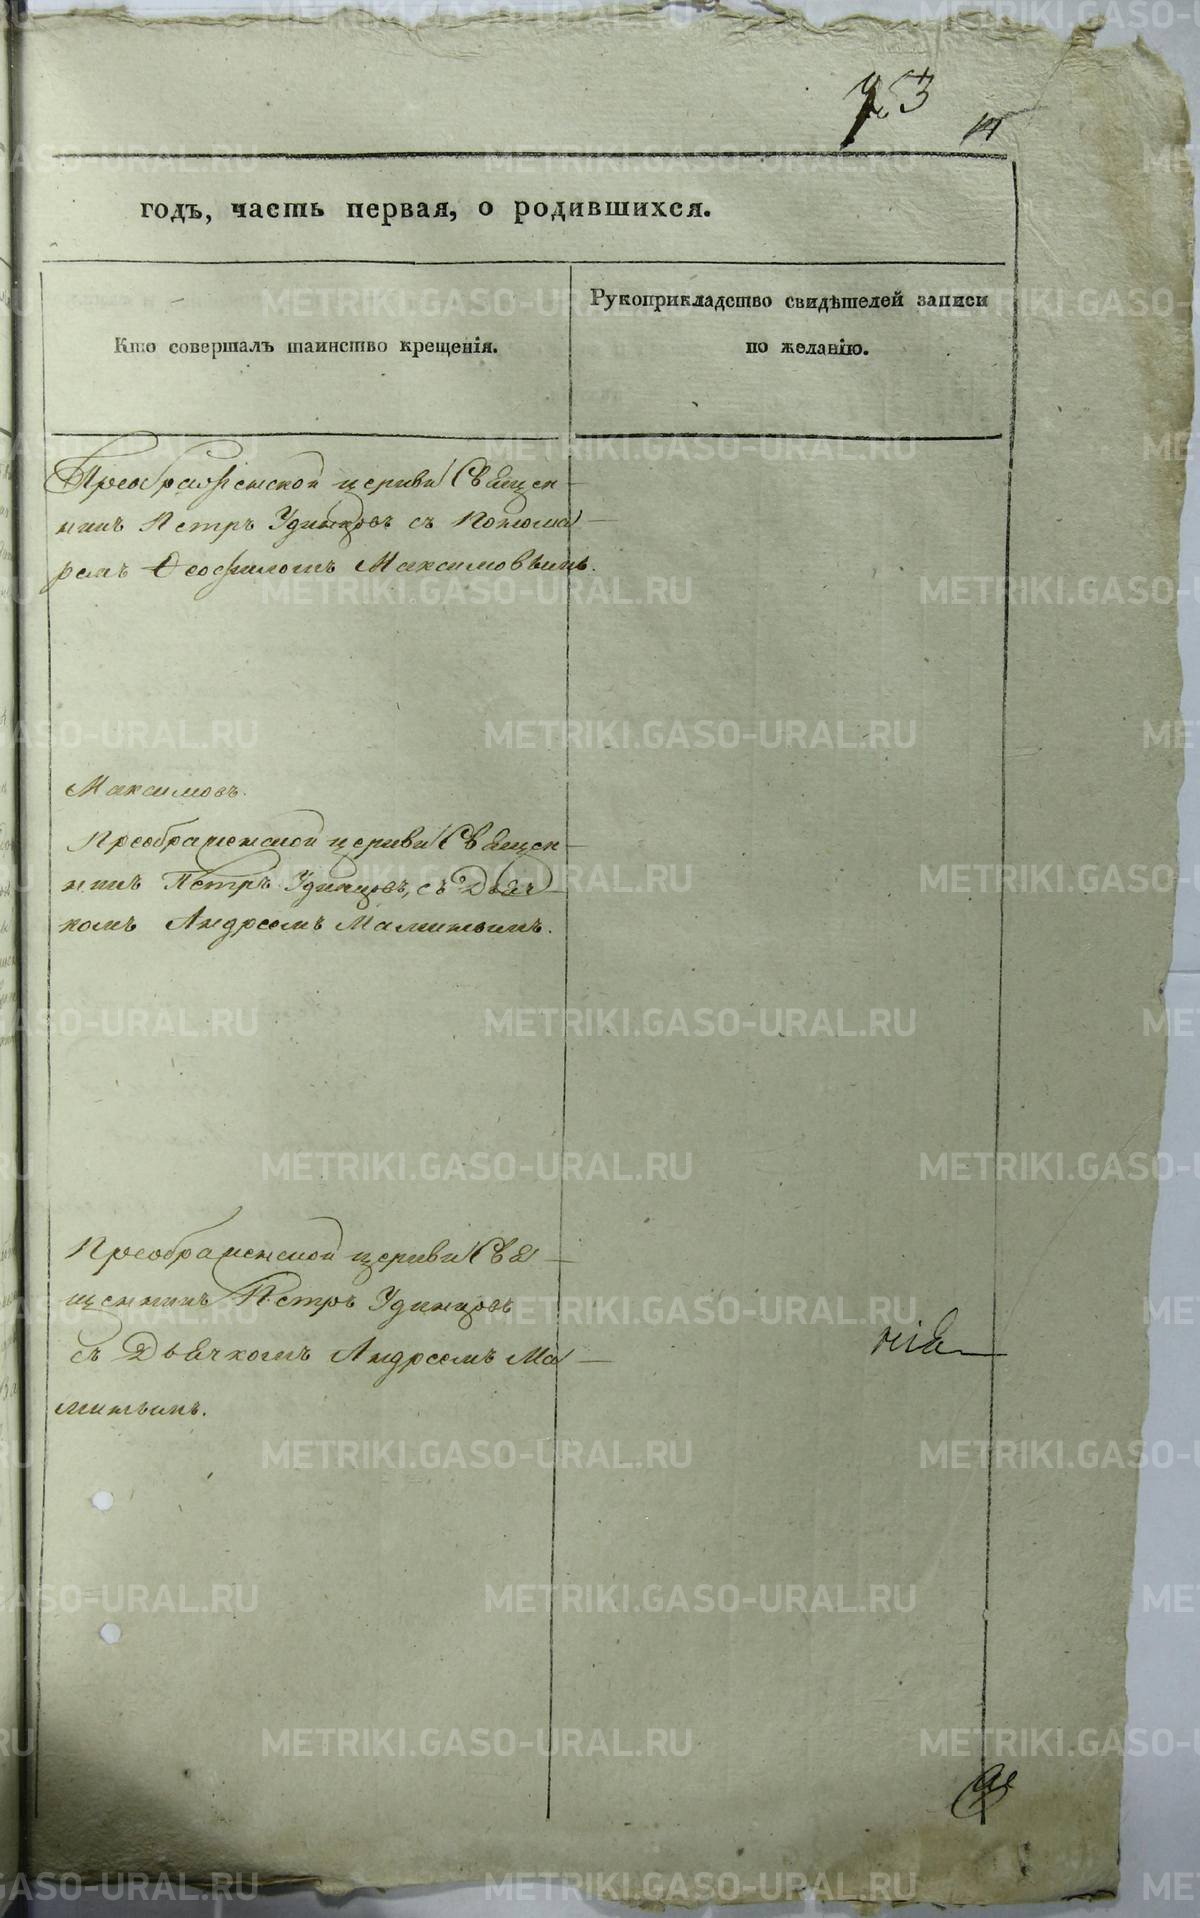 73
годъ, часть первая, о родившихся.
Кто совершалъ таинство крещенія.
Рукоприкладство свидѣтелей записи
по желанію.
Преображенской церкви Священ-
никъ Петръ Удинцовъ съ Понома-
ремъ Ѳеофиломъ Максимовымъ.
Максимовъ.
Преображенской церкви Священ-
никъ Петръ Удинцовъ, съ Дьяч-
комъ Андреемъ Маминымъ.
Преображенской церкви Свя-
щенникъ Петръ Удинцовъ
съ Дьячкомъ Андреемъ Ма-
минымъ.
METRIKI.GASO-URAL.RU